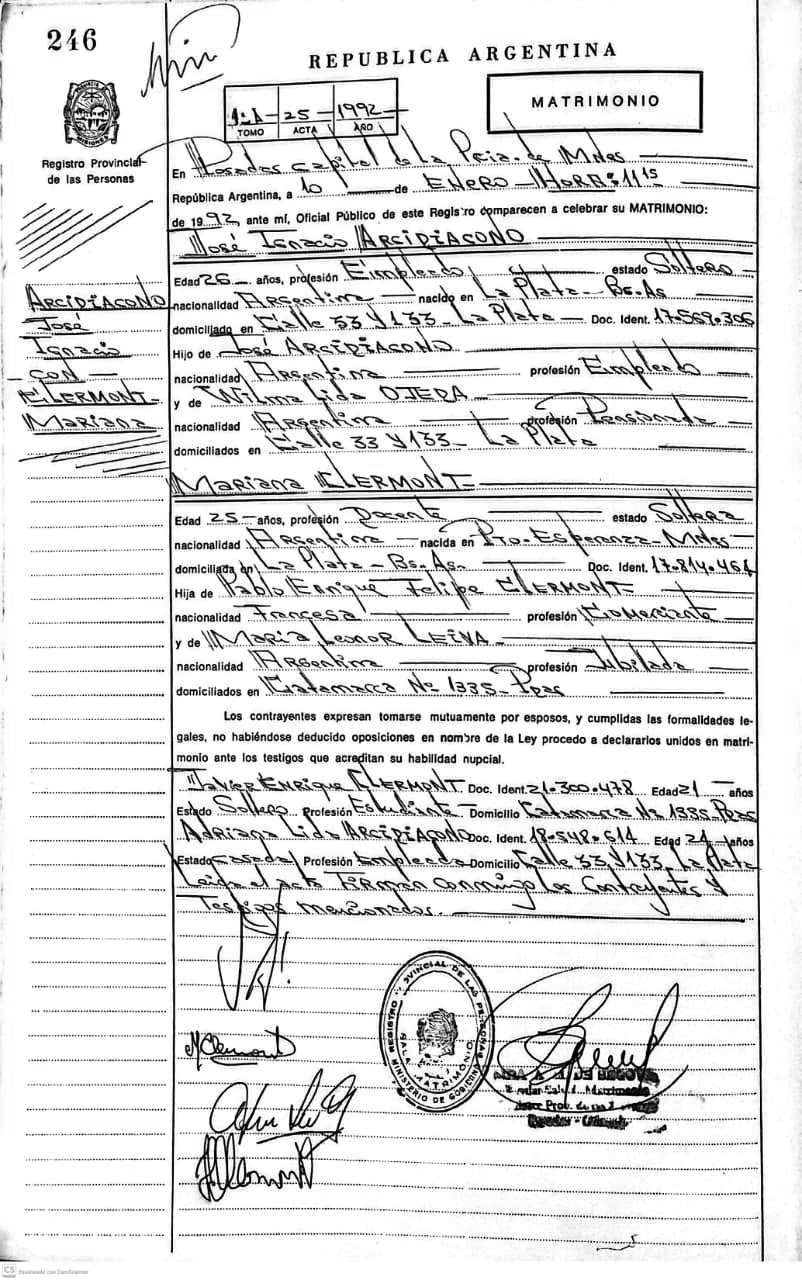 246
REPUBLICA ARGENTINA
MATRIMONIO
1ºA - 25 - 1992
TOMO ACTA AÑO
PROVINCIA DE MISIONES
Registro Provincial
de las Personas
En Posadas Capital de la Pcia. de Mnes
República Argentina, a 10 de ENERO - HORA: 11 15
de 1992, ante mí, Oficial Público de este Registro comparecen a celebrar su MATRIMONIO:
José Ignacio ARCIDIACONO
Edad 26 años, profesión Empleado estado Soltero
nacionalidad Argentina nacido en La Plata - Bs. As
domiciliado en Calle 33 y 133 - La Plata - Doc. Ident. 17.569.306
Hijo de José ARCIDIACONO
nacionalidad Argentina profesión Empleado
y de Wilma Lida OJEDA
nacionalidad Argentina profesión Pensionada
domiciliados en Calle 33 y 133 - La Plata
ARCIDIACONO
José
Ignacio
- CON -
CLERMONT -
Mariana
Mariana CLERMONT -
Edad 25 - años, profesión Docente estado Soltera
nacionalidad Argentina nacida en Pto. Esperanza - Mnes -
domiciliada en La Plata - Bs. As. - Doc. Ident. 17.814.464
Hija de Pablo Enrique Felipe CLERMONT
nacionalidad Francesa profesión Comerciante
y de María Leonor LEIVA -
nacionalidad Argentina profesión Jubilada
domiciliados en Catamarca Nº 1335 - Pdas
Los contrayentes expresan tomarse mutuamente por esposos, y cumplidas las formalidades le-
gales, no habiéndose deducido oposiciones en nombre de la Ley procedo a declararlos unidos en matri-
monio ante los testigos que acreditan su habilidad nupcial.
Javier Enrique CLERMONT Doc. Ident. 21.300.478 Edad 21 - años
Estado Soltero Profesión Estudiante Domicilio Catamarca Nº 1335 - Pdas
Adriana Lida ARCIDIACONO Doc. Ident. 18.548.614 Edad 24 años
Estado casada Profesión Empleada Domicilio Calle 33 y 133 - La Plata
Leída el acta firman conmigo los Contrayentes y
Testigos mencionados.
REGISTRO PROVINCIAL DE LAS PERSONAS
SALA MATRIMONIO
MINISTERIO DE GOBIERNO
M Clermont
CS Escaneado con CamScanner